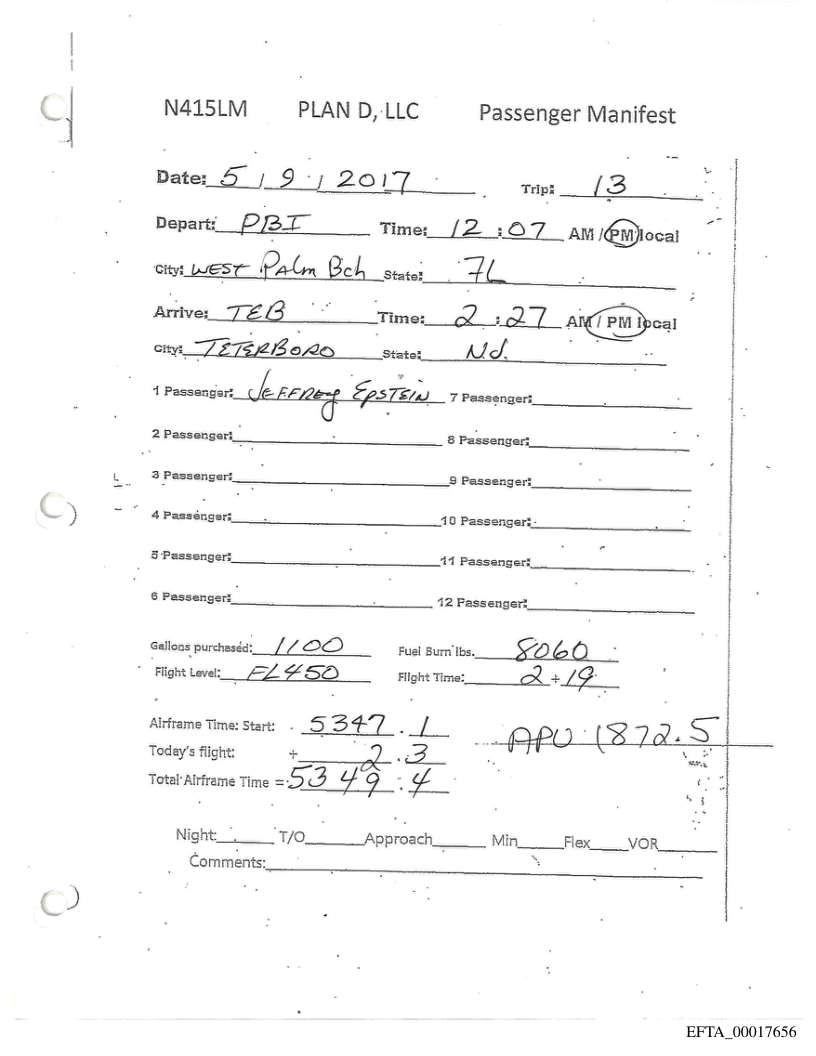 N415LM PLAN D, LLC Passenger Manifest
Date: 5 / 9 / 2017 Trip: 13
Depart: PBI Time: 12 : 07 AM / PM local
City: WEST PALM Bch State: FL
Arrive: TEB Time: 2 : 27 AM / PM local
City: TETERBORO State: NJ.
1 Passenger: JEFFREY EPSTEIN 7 Passenger:
2 Passenger: 8 Passenger:
3 Passenger: 9 Passenger:
4 Passenger: 10 Passenger:
5 Passenger: 11 Passenger:
6 Passenger: 12 Passenger:
Gallons purchased: 1100 Fuel Burn lbs. 8060
Flight Level: FL450 Flight Time: 2 + 19
Airframe Time: Start: 5347.1 APU 1872.5
Today's flight: + 2.3
Total Airframe Time = 5349.4
Night: T/O Approach Min Flex VOR
Comments:
EFTA_00017656